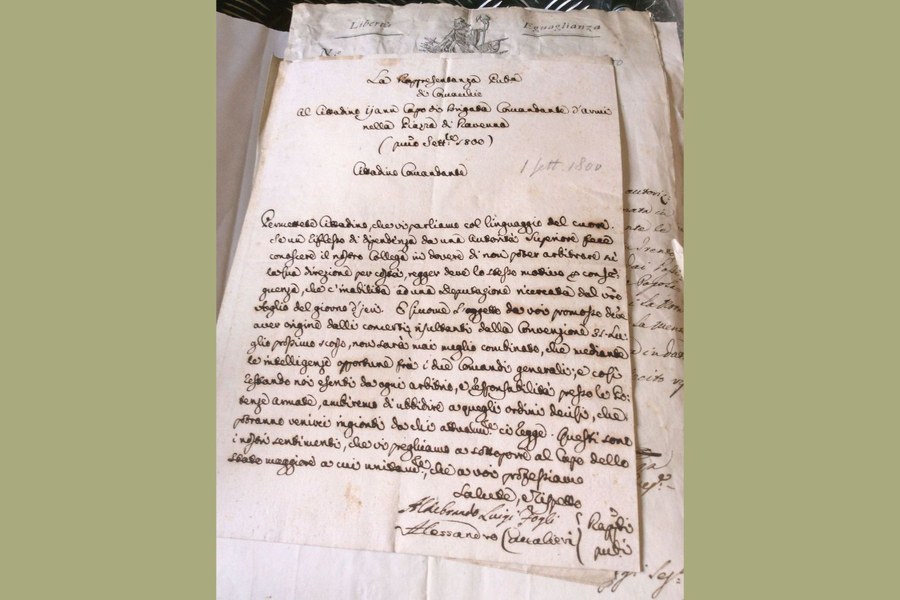 Libertà Eguaglianza
La Rappresentanza Pub.a
di Comacchio
Al Cittadino Capo di Brigada Comandante d'armi
nella Piazza di Ravenna
(primo Sett.e 1800)
Cittadino Comandante
1 sett. 1800
Permettete Cittadino, che vi parliamo col linguaggio del cuore.
Se un riflesso di dipendenza da una Autorità Superiore fece
conoscere il nostro Collega in dovere di non poter arbitrare
la sua direzione per costà, regger deve lo stesso motivo e conse-
guenza, che c'inabilita ad una deputazione ricercata dal vro
foglio del giorno d'jeri. E siccome l'oggetto da voi promosso deve
aver origine dalli concerti risultanti dalla Convenzione Lu-
glio prossimo scorso, non sarà mai meglio combinato, che mediante
le intelligenze opportune frà i due Comandi generali, e così
restando noi esenti da ogni arbitrio, e responsabilità presso le Po-
tenze armate, ambiremo di ubbidire a quegli ordini decisi, che
potranno venirci ingionti da chi attualm.te ci legge. Questi sono
i nostri sentimenti, che vi preghiamo a sottoporre al Capo dello
stato maggiore a cui unitam.te, che a voi professiamo
Salute, e rispetto
Aldebrando Luigi Fogli
Alessandro Cavalieri
Rapp.ti
pub.i